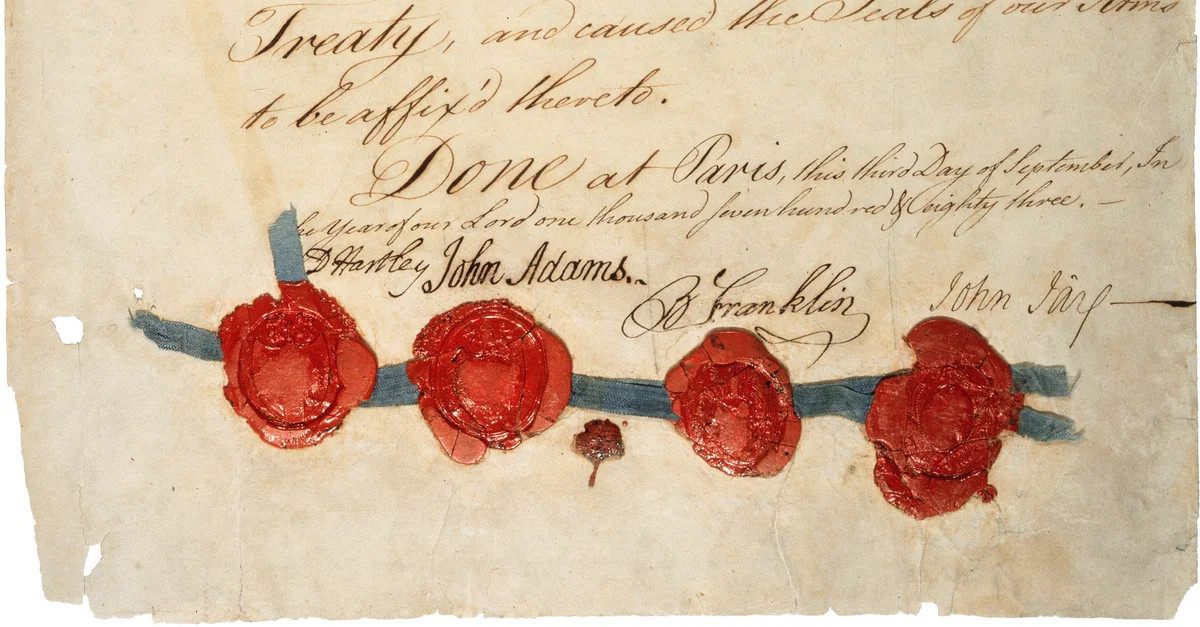 Treaty, and caused the Seals of our Arms
to be affix'd thereto.
Done at Paris, this third Day of September, In
the Year of our Lord one thousand seven hundred & eighty three. —
D Hartley John Adams. B Franklin John Jay —